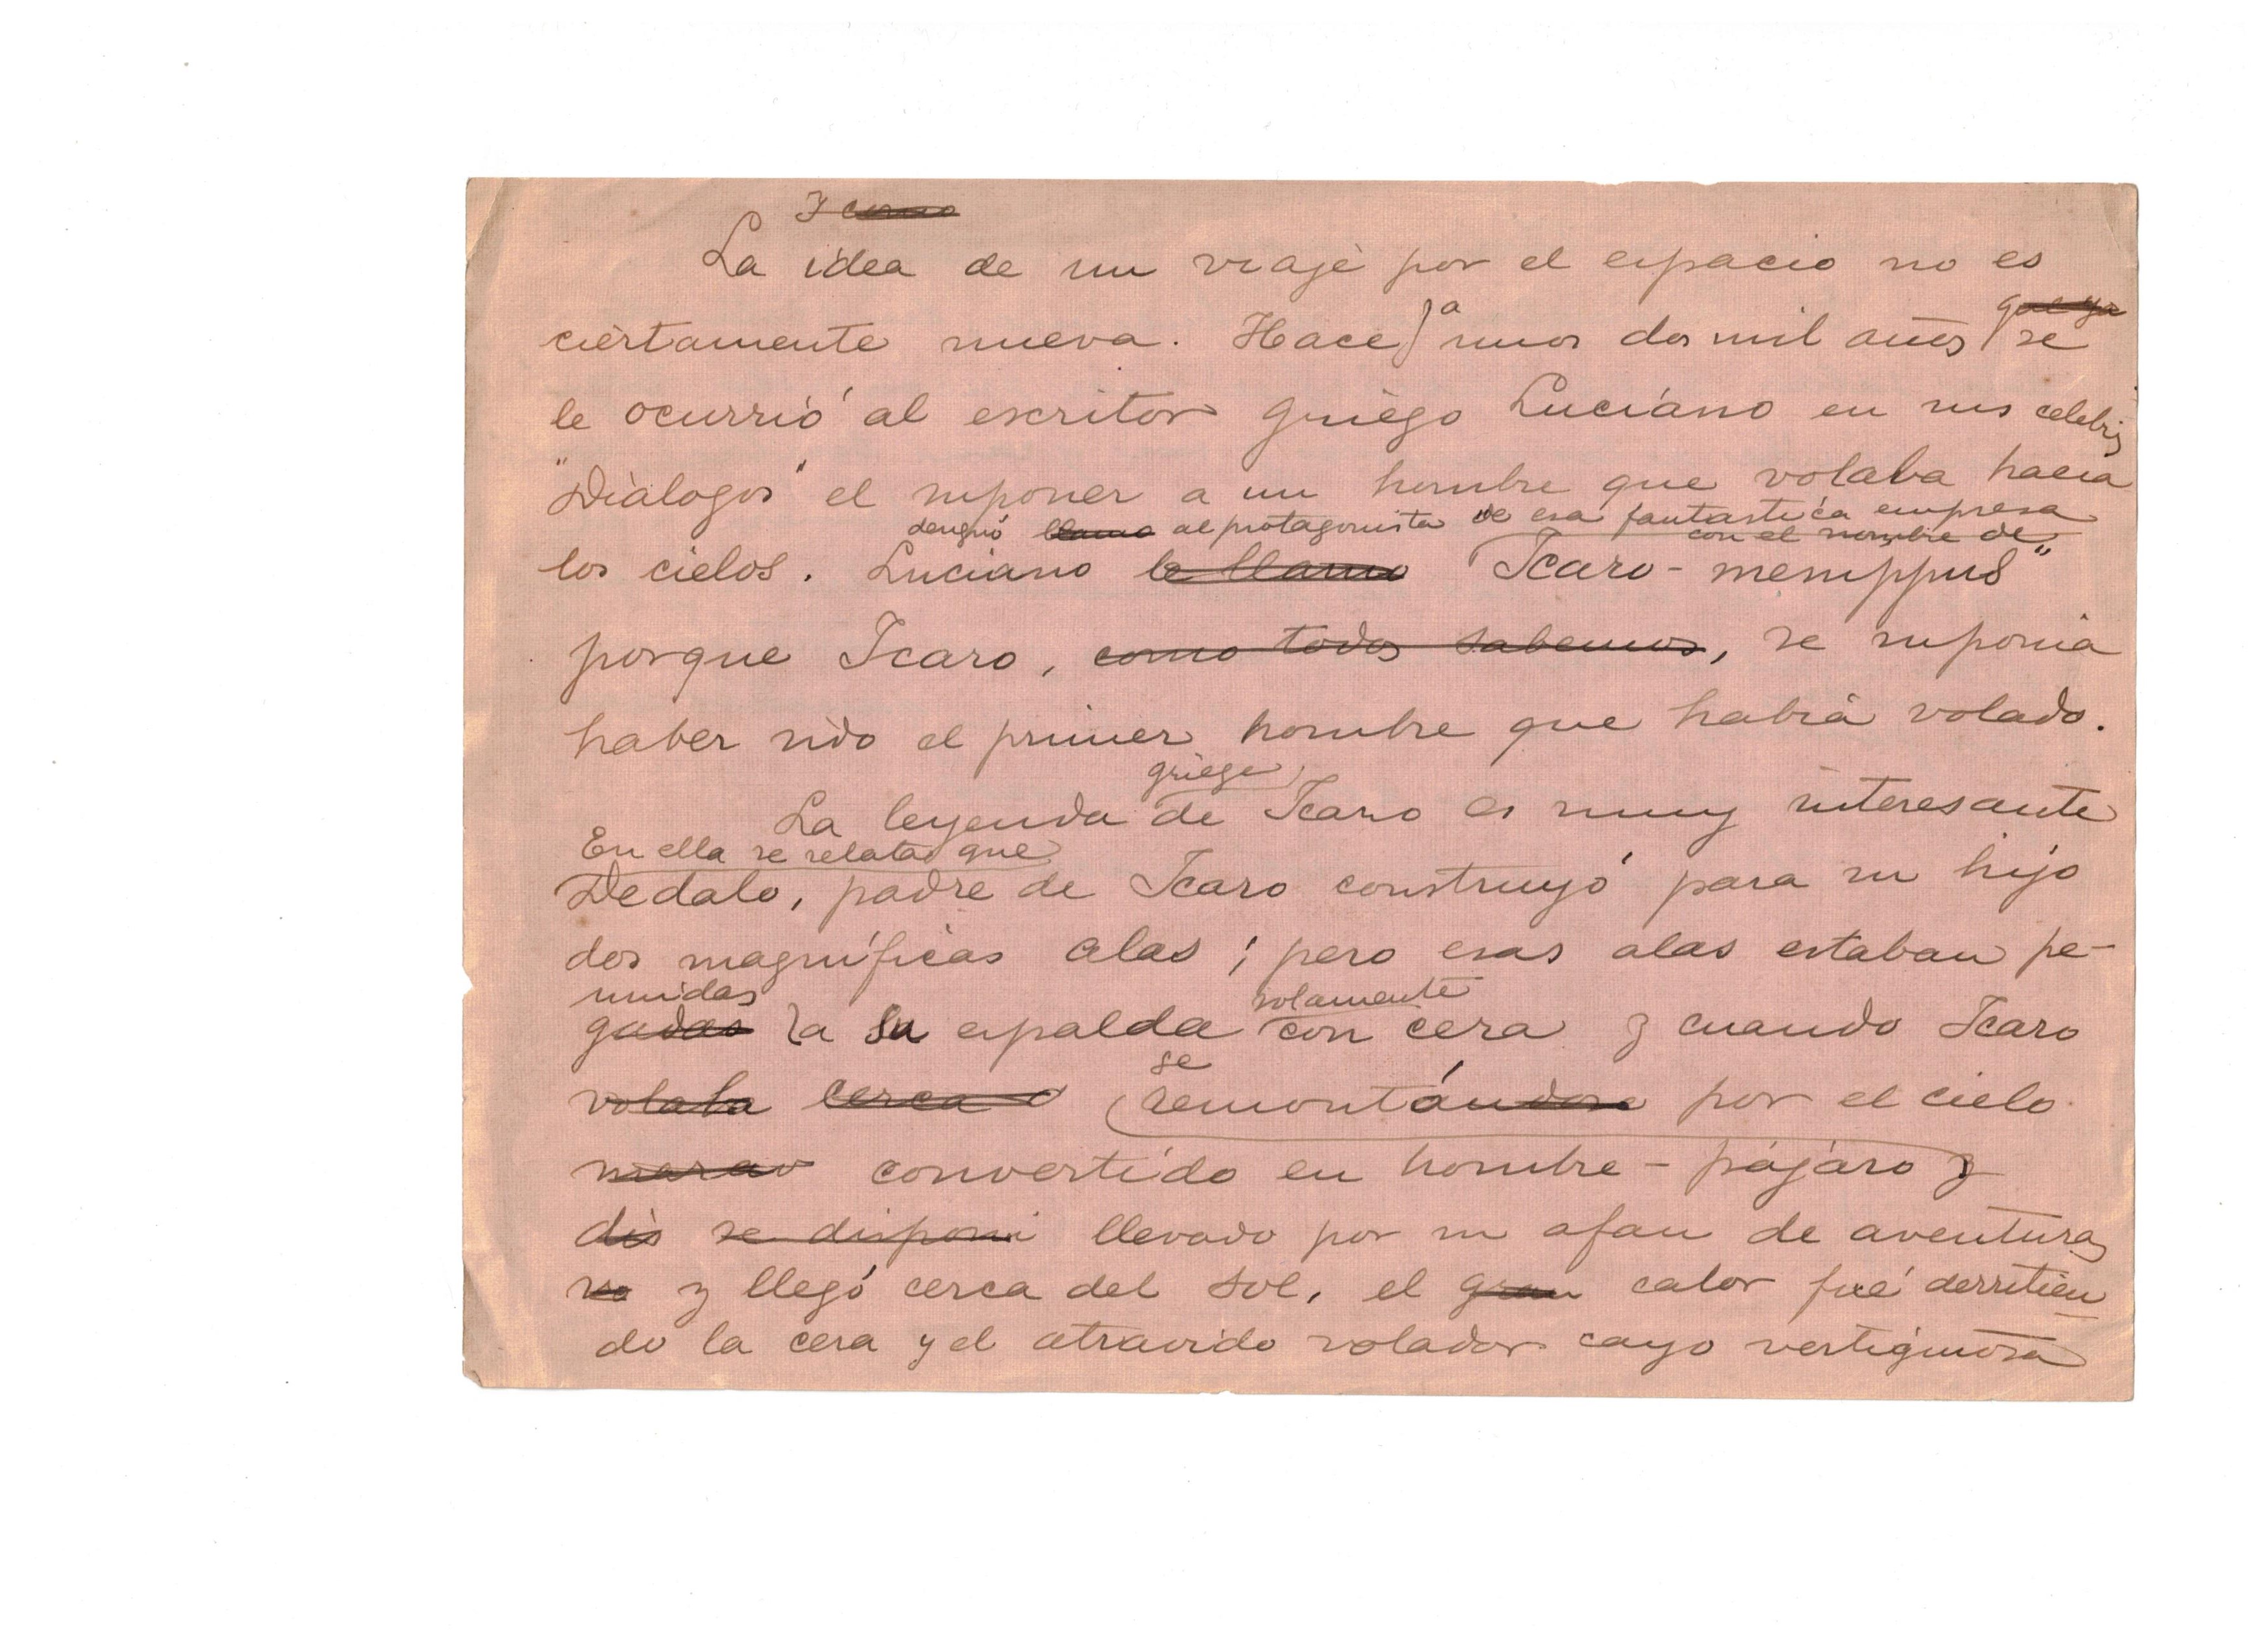 Y como
La idea de un viaje por el espacio no es
que ya
ciertamente nueva. Hace ya unos dos mil años se
le ocurrió al escritor griego Luciano en sus celebres
"Diálogos" el suponer a un hombre que volaba hacia
designó llamó al protagonista de esa fantastica empresa
con el nombre de
los cielos. Luciano le llamó "Icaro-menippus"
porque Icaro, como todos sabemos, se suponia
haber sido el primer hombre que habia volado.
griega
La leyenda de Icaro es muy interesante
En ella se relata que
Dedalo, padre de Icaro construyó para su hijo
dos magníficas alas; pero esas alas estaban pe-
unidas solamente
gadas a su espalda con cera y cuando Icaro
se
volaba cerca remontándose por el cielo
convertido en hombre-pájaro y
dis se disponi llevado por su afan de aventuras
y llegó cerca del sol, el gran calor fué derritien
do la cera y el atrevido volador cayo vertiginosa